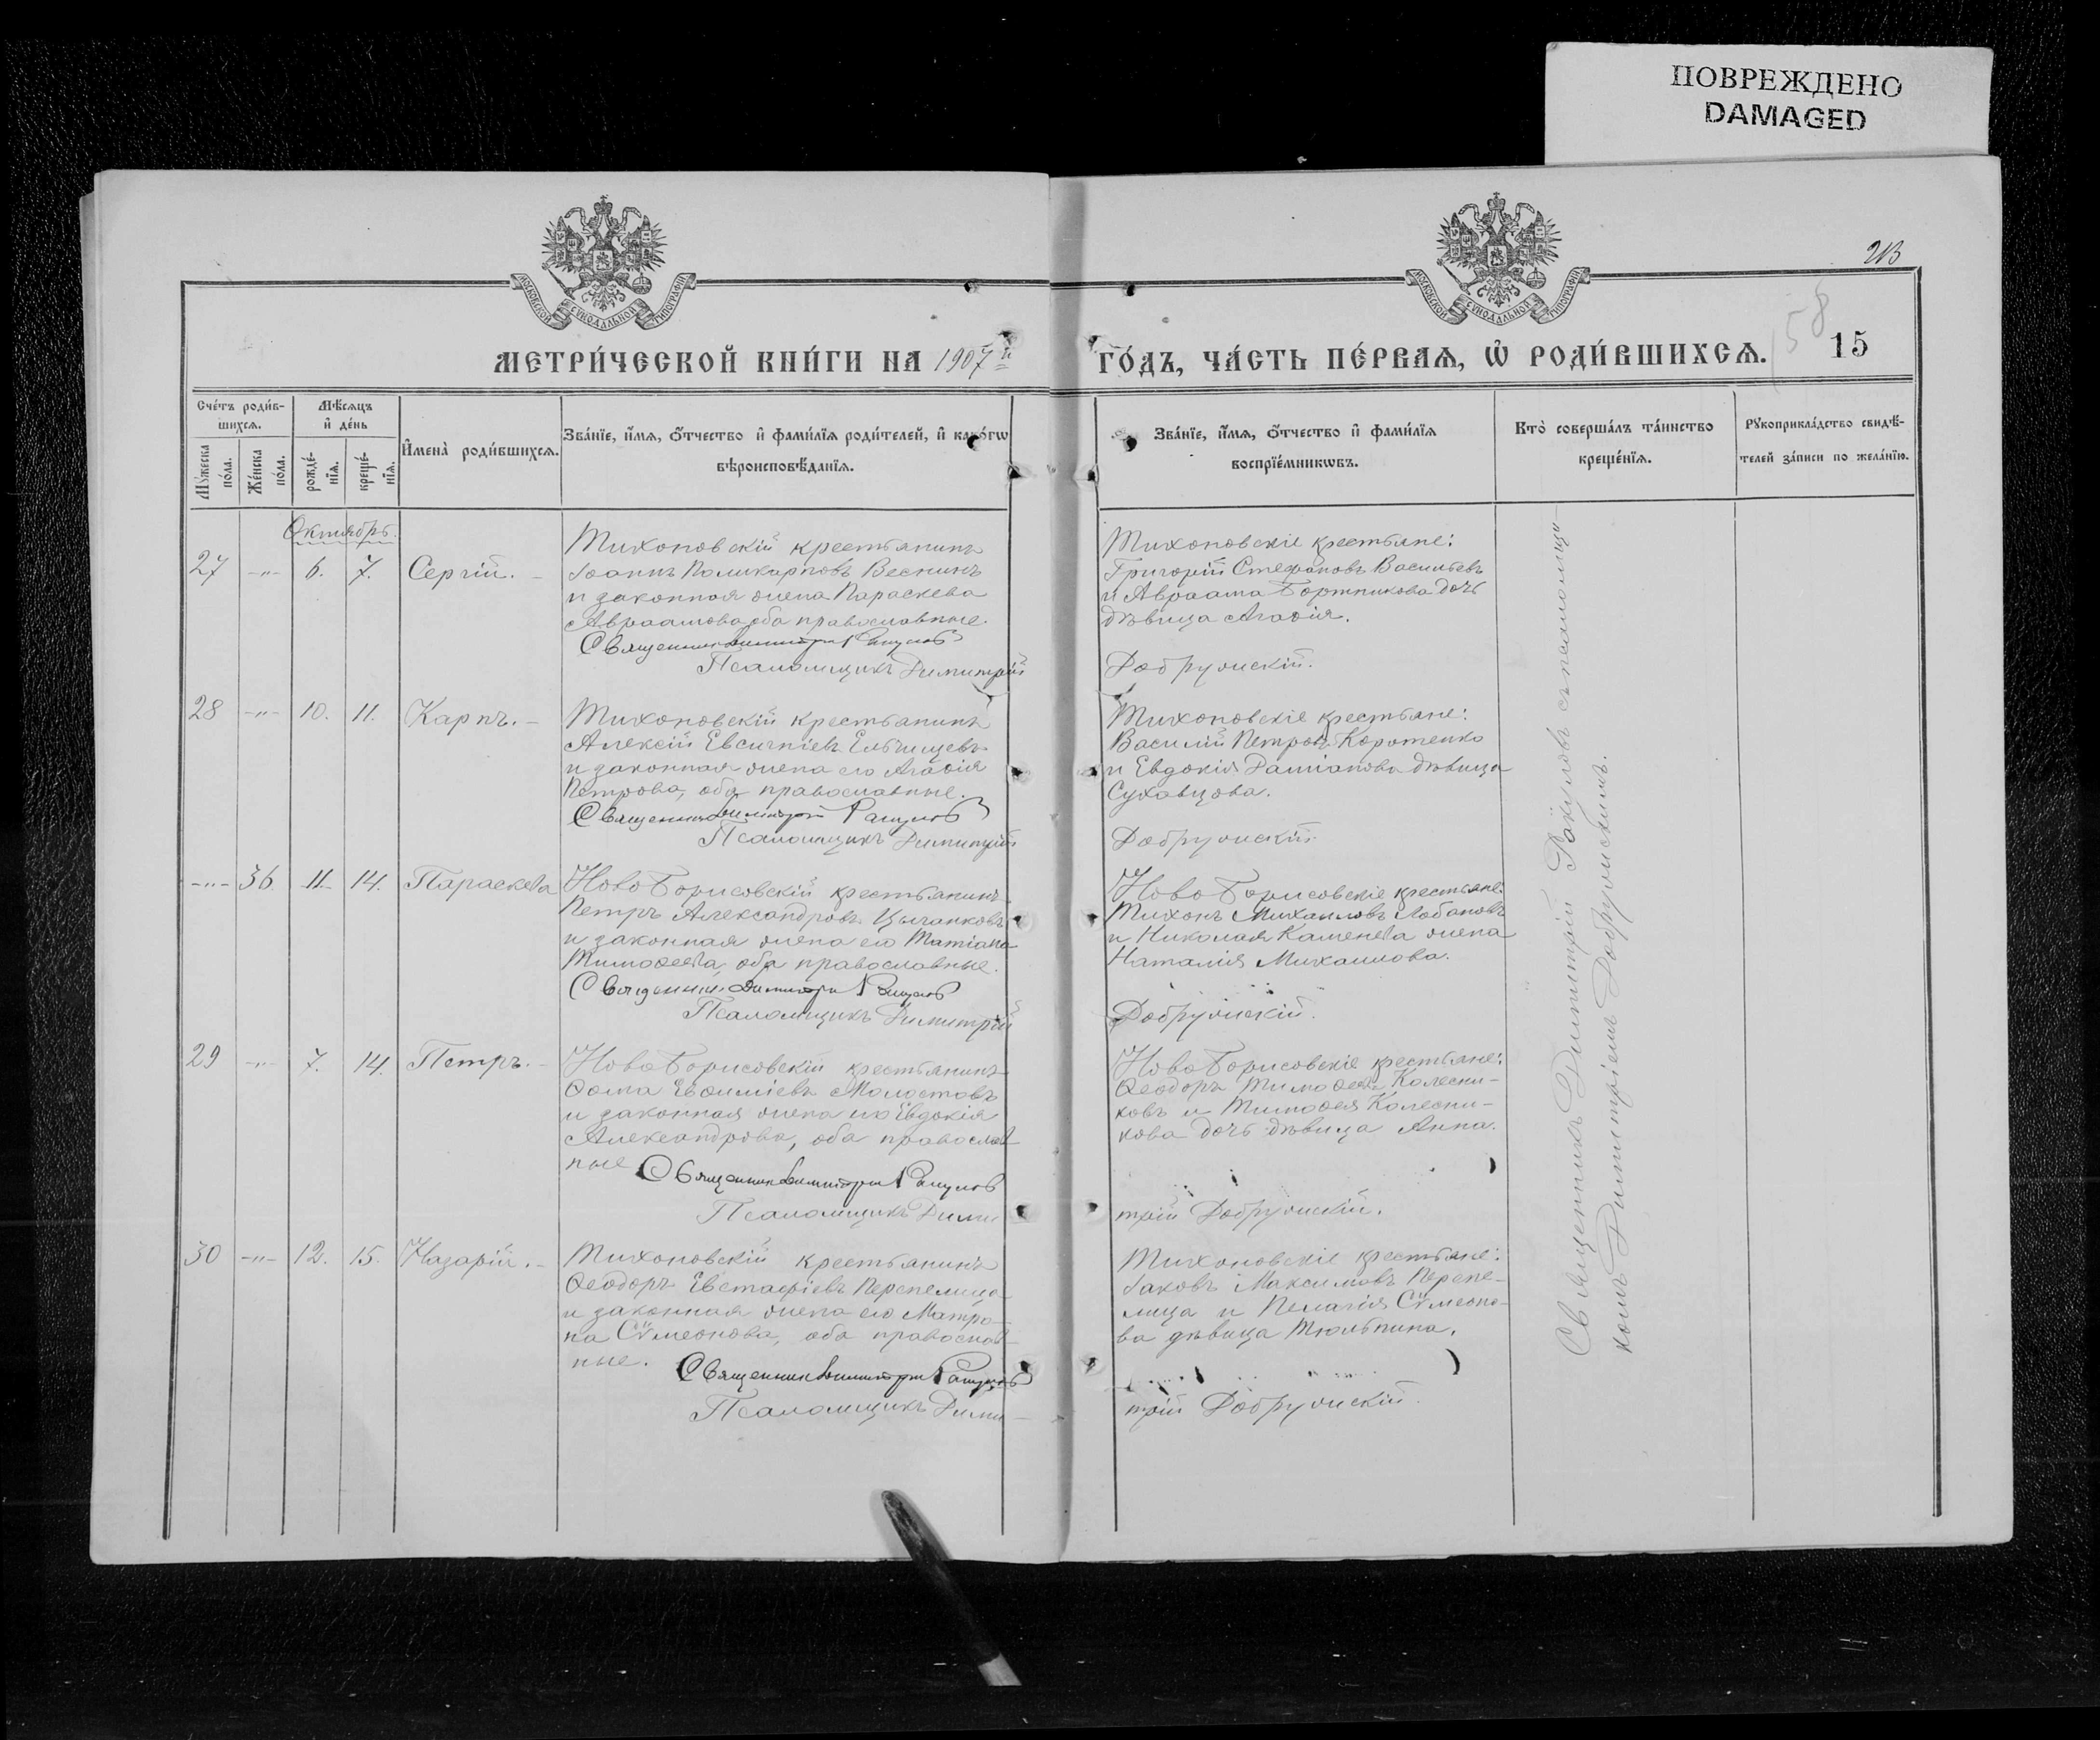 ПОВРЕЖДЕНО
DAMAGED
МОСКОВСКОЙ СѴНОДАЛЬНОЙ ТИПОГРАФІИ
МОСКОВСКОЙ СѴНОДАЛЬНОЙ ТИПОГРАФІИ
МЕТРИ́ЧЕСКОЙ КНИ́ГИ НА 1907й
ГО́ДЪ, ЧА́СТЬ ПЕ́РВАѦ, Ѡ҆ РОДИ́ВШИХСѦ. 158 15
Сче́тъ роди́в-
шихсѧ.
Мѣ́сѧцъ
и҆ де́нь
Мꙋ́жеска
по́ла.
Же́нска
по́ла.
рожде́-
нїѧ.
креще́-
нїѧ.
И҆мена̀ роди́вшихсѧ.
Зва́нїе, и҆́мѧ, ѻ҆́тчество и҆ фами́лїѧ роди́телей, и҆ како́гѡ
вѣроисповѣ́данїѧ.
Зва́нїе, и҆́мѧ, ѻ҆́тчество и҆ фами́лїѧ
воспрїе́мникѡвъ.
Кто̀ соверша́лъ та́инство
креще́нїѧ.
Рꙋкоприкла́дство свидѣ́-
телей за́писи по жела́нїю.
Октябрь.
27 -"- 6. 7. Сергій. -
Тихоновскій крестьянинъ
Іоаннъ Поликарповъ Веснинъ
и законная жена Параскева
Авраамова, оба православные.
Священникъ Димитрій
Псаломщикъ Димитрій
Тихоновскіе крестьяне:
Григорій Стефановъ Васильевъ
и Авраама Бортникова дочь
дѣвица Агаѳія.
Добружскій.
28 -"- 10. 11. Карпъ. -
Тихоновскій крестьянинъ
Алексій Евсигніевъ
и законная жена его Агаѳія
Петрова, оба православные.
Священникъ Димитрій
Псаломщикъ Димитрій
Тихоновскіе крестьяне:
Василій Петровъ Коротенко
и Евдокія Даміанова дѣвица
Суховцова.
Добружскій.
-"- 36. 11. 14. Параскева
НовоБорисовскій крестьянинъ
Петръ Александровъ Цыганковъ
и законная жена его Татіана
Тимоѳеева, оба православные.
Священникъ Димитрій
Псаломщикъ Димитрій
НовоБорисовскіе крестьяне:
Тихонъ Михаиловъ Лобановъ
и Николая Каменева жена
Наталія Михаилова.
Добружскій.
29 -"- 7. 14. Петръ. -
НовоБорисовскій крестьянинъ
Ѳома Евѳиміевъ Молостовъ
и законная жена его Евдокія
Александрова, оба православ-
ные. Священникъ Димитрій
Псаломщикъ Дими-
НовоБорисовскіе крестьяне:
Ѳеодоръ Тимоѳеевъ Колесни-
ковъ и Тимоѳея Колесни-
кова дочь дѣвица Анна.
трій Добружскій.
30 -"- 12. 15. Назарій. -
Тихоновскій крестьянинъ
Ѳеодоръ Евстафіевъ Перепелица
и законная жена его Матро-
на Сѵмеонова, оба православ-
ные. Священникъ Димитрій
Псаломщикъ Дими-
Тихоновскіе крестьяне:
Іаковъ Максимовъ Перепе-
лица и Пелагія Сѵмеоно-
ва дѣвица Тюльпина.
трій Добружскій.
Священникъ Димитрій съ псаломщи-
комъ Димитріемъ Добружскимъ.